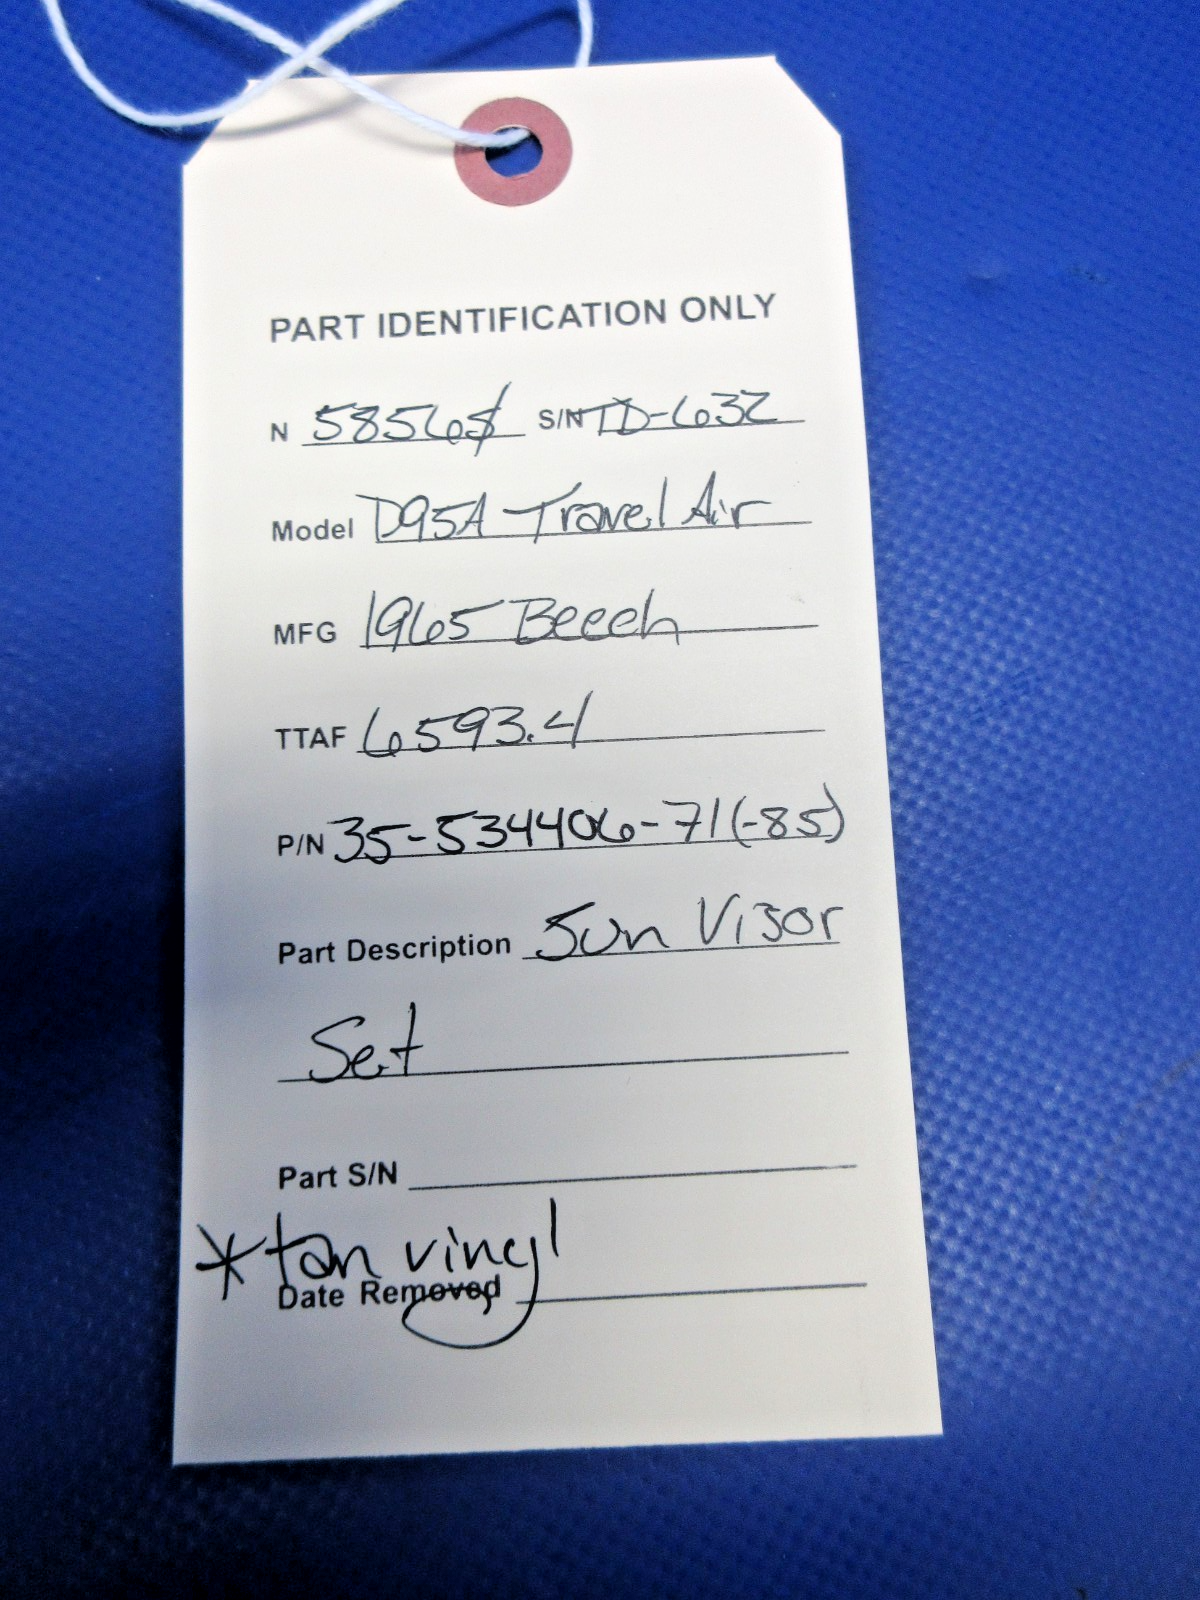 PART IDENTIFICATION ONLY
N 5856S S/N TD-632
Model D95A Travel Air
MFG 1965 Beech
TTAF 6593.4
P/N 35-534406-71(-85)
Part Description Sun Visor
Set
Part S/N
*tan vinyl
Date Removed